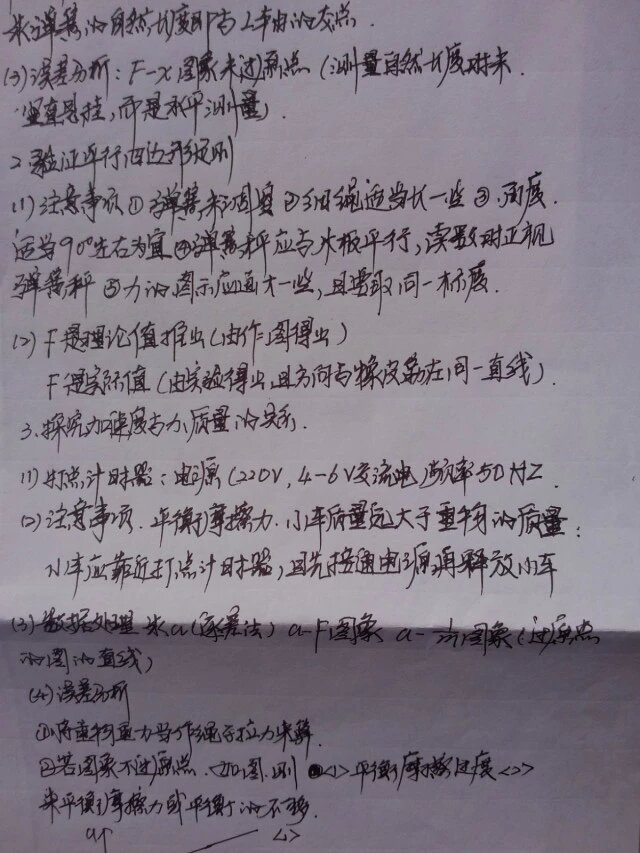 来弹簧的自然长度即与L轴的交点.
(3)误差分析：F-x图象未过原点（测量自然长度时未
竖直悬挂，而是水平测量）.
2.验证平行四边形定则
(1)注意事项①弹簧秤调零②细绳适当长一些③角度.
适当90°左右为宜④弹簧秤应与木板平行，读数时正视
弹簧秤⑤力的图示应画大一些，且要取同一标度.
(2)F是理论值推出（由作图得出）
F是实际值（由实验得出且方向与橡皮筋在同一直线）.
3.探究加速度与力,质量的关系.
(1)打点计时器：电源（220V，4-6V交流电）频率50HZ
(2)注意事项.平衡摩擦力.小车质量远大于重物的质量；
小车应靠近打点计时器，且先接通电源再释放小车
(3)数据处理 求a(逐差法) a-F图象 a-图象（过原点
的图的直线）
(4)误差分析
①将重物重力当作绳子拉力来解
②若图象不过原点.如图.则<1>平衡摩擦过度<2>
未平衡摩擦力或平衡的不够.
a↑ <1>